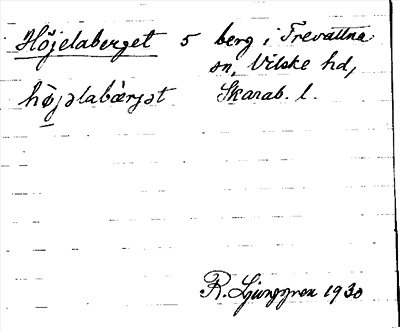 Höjelaberget 5 berg i Trevattna
sn, Vilske hd,
höjəlabærjət Skarab. l.
R. Ljunggren 1930